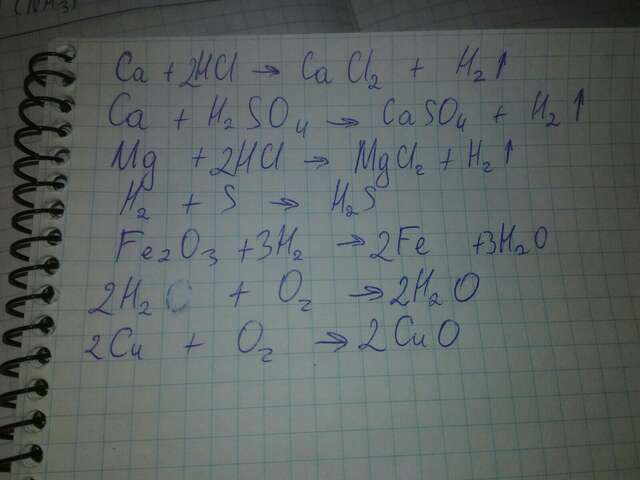 (NH3)
Ca + 2HCl → CaCl₂ + H₂↑
Ca + H₂SO₄ → CaSO₄ + H₂↑
Mg + 2HCl → MgCl₂ + H₂↑
H₂ + S → H₂S
Fe₂O₃ + 3H₂ → 2Fe + 3H₂O
2H₂ + O₂ → 2H₂O
2Cu + O₂ → 2CuO